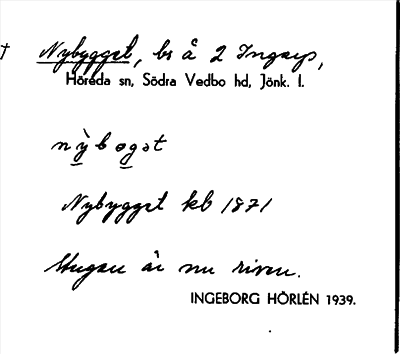 † Nybygget, bs å 2 Ingarp,
Höreda sn, Södra Vedbo hd, Jönk. l.
nỳbəgət
Nybygget kb 1871
Stugan är nu riven.
INGEBORG HÖRLÉN 1939.